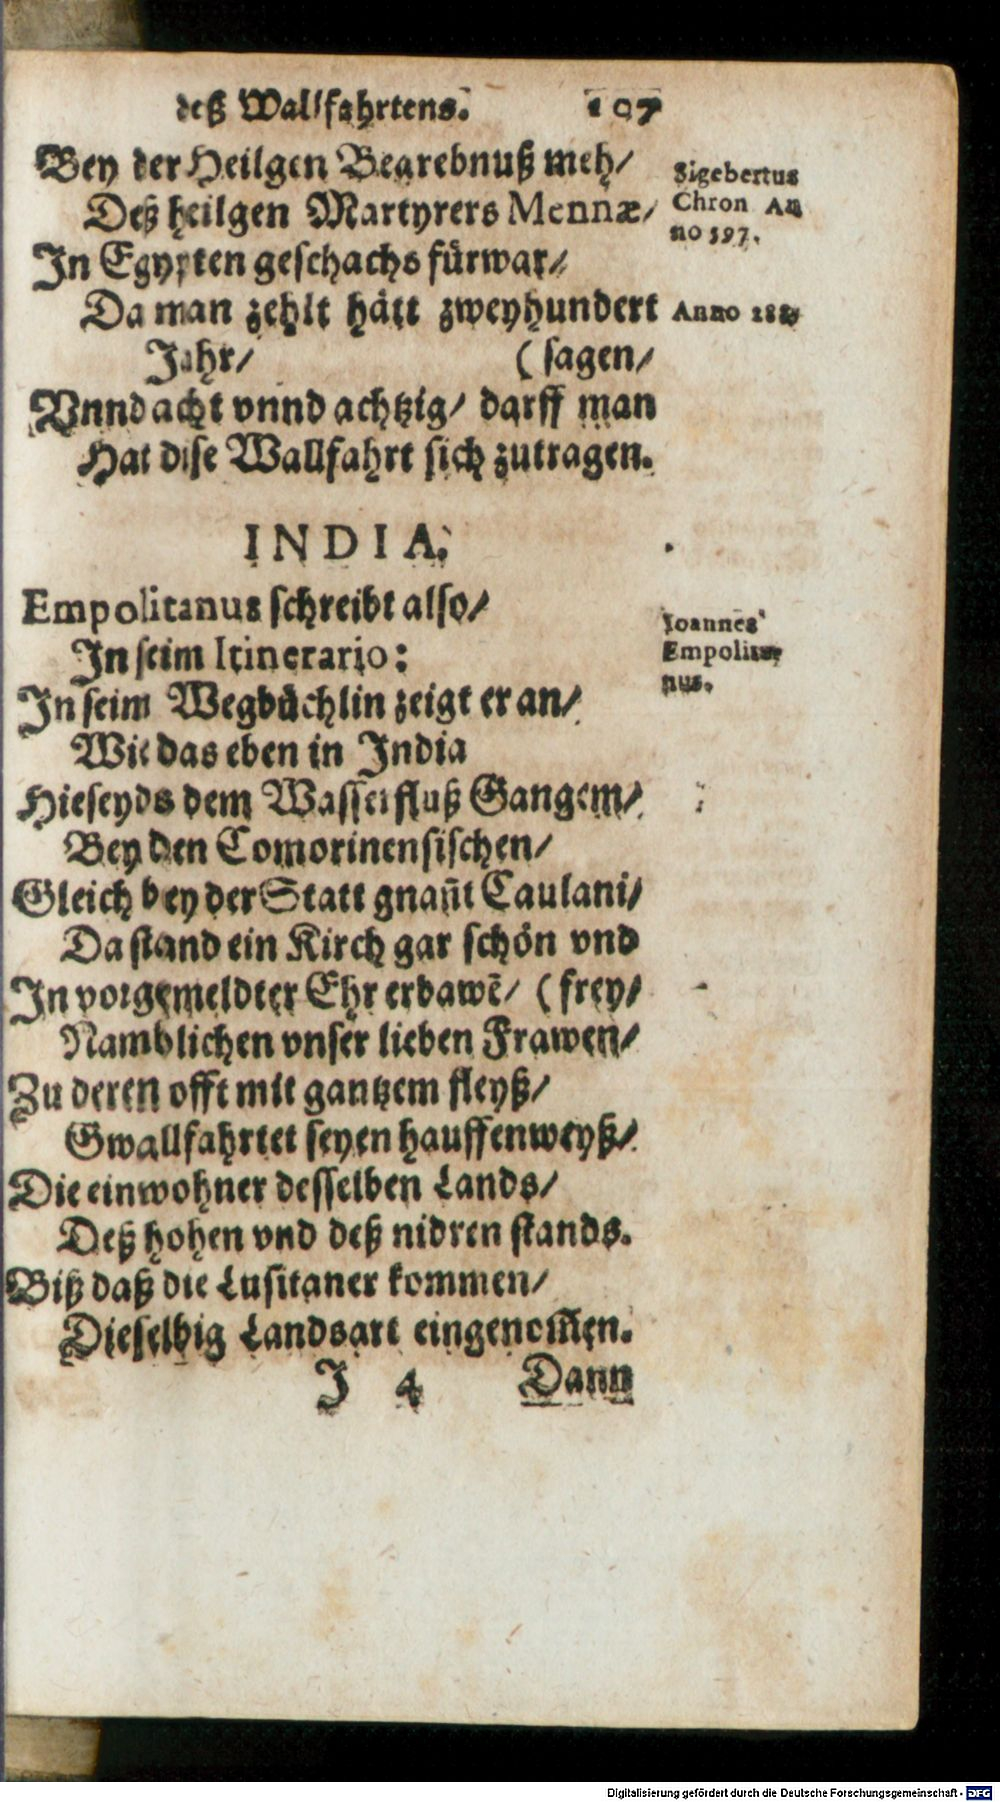 deß Wallfahrtens. 107
Bey der Heilgen Begrebnuß meh/
Deß heilgen Martyrers Mennæ/
In Egypten geschachs fürwar/
Da man zehlt hätt zweyhundert
Jahr/ (sagen/
Vnnd acht vnnd achtzig/ darff man
Hat dise Wallfahrt sich zutragen.
Sigebertus
Chron An
no 597.
Anno 288
INDIA.
Empolitanus schreibt also/
In seim Itinerario:
In seim Wegbüchlin zeigt er an/
Wie das eben in India
Hieseyds dem Wasserfluß Gangem/
Bey den Comorinensischen/
Gleich bey der Statt gnañt Caulani/
Da stand ein Kirch gar schön vnd
In vorgemeldter Ehr erbawẽ/ (frey/
Namblichen vnser lieben Frawen/
Zu deren offt mit gantzem fleyß/
Gwallfahrtet seyen hauffenweyß/
Die einwohner desselben Lands/
Deß hohen vnd deß nidren stands.
Biß daß die Lusitaner kommen/
Dieselbig Landsart eingenom̃en.
Ioannes
Empolita-
nus.
J 4 Dann
Digitalisierung gefördert durch die Deutsche Forschungsgemeinschaft - DFG